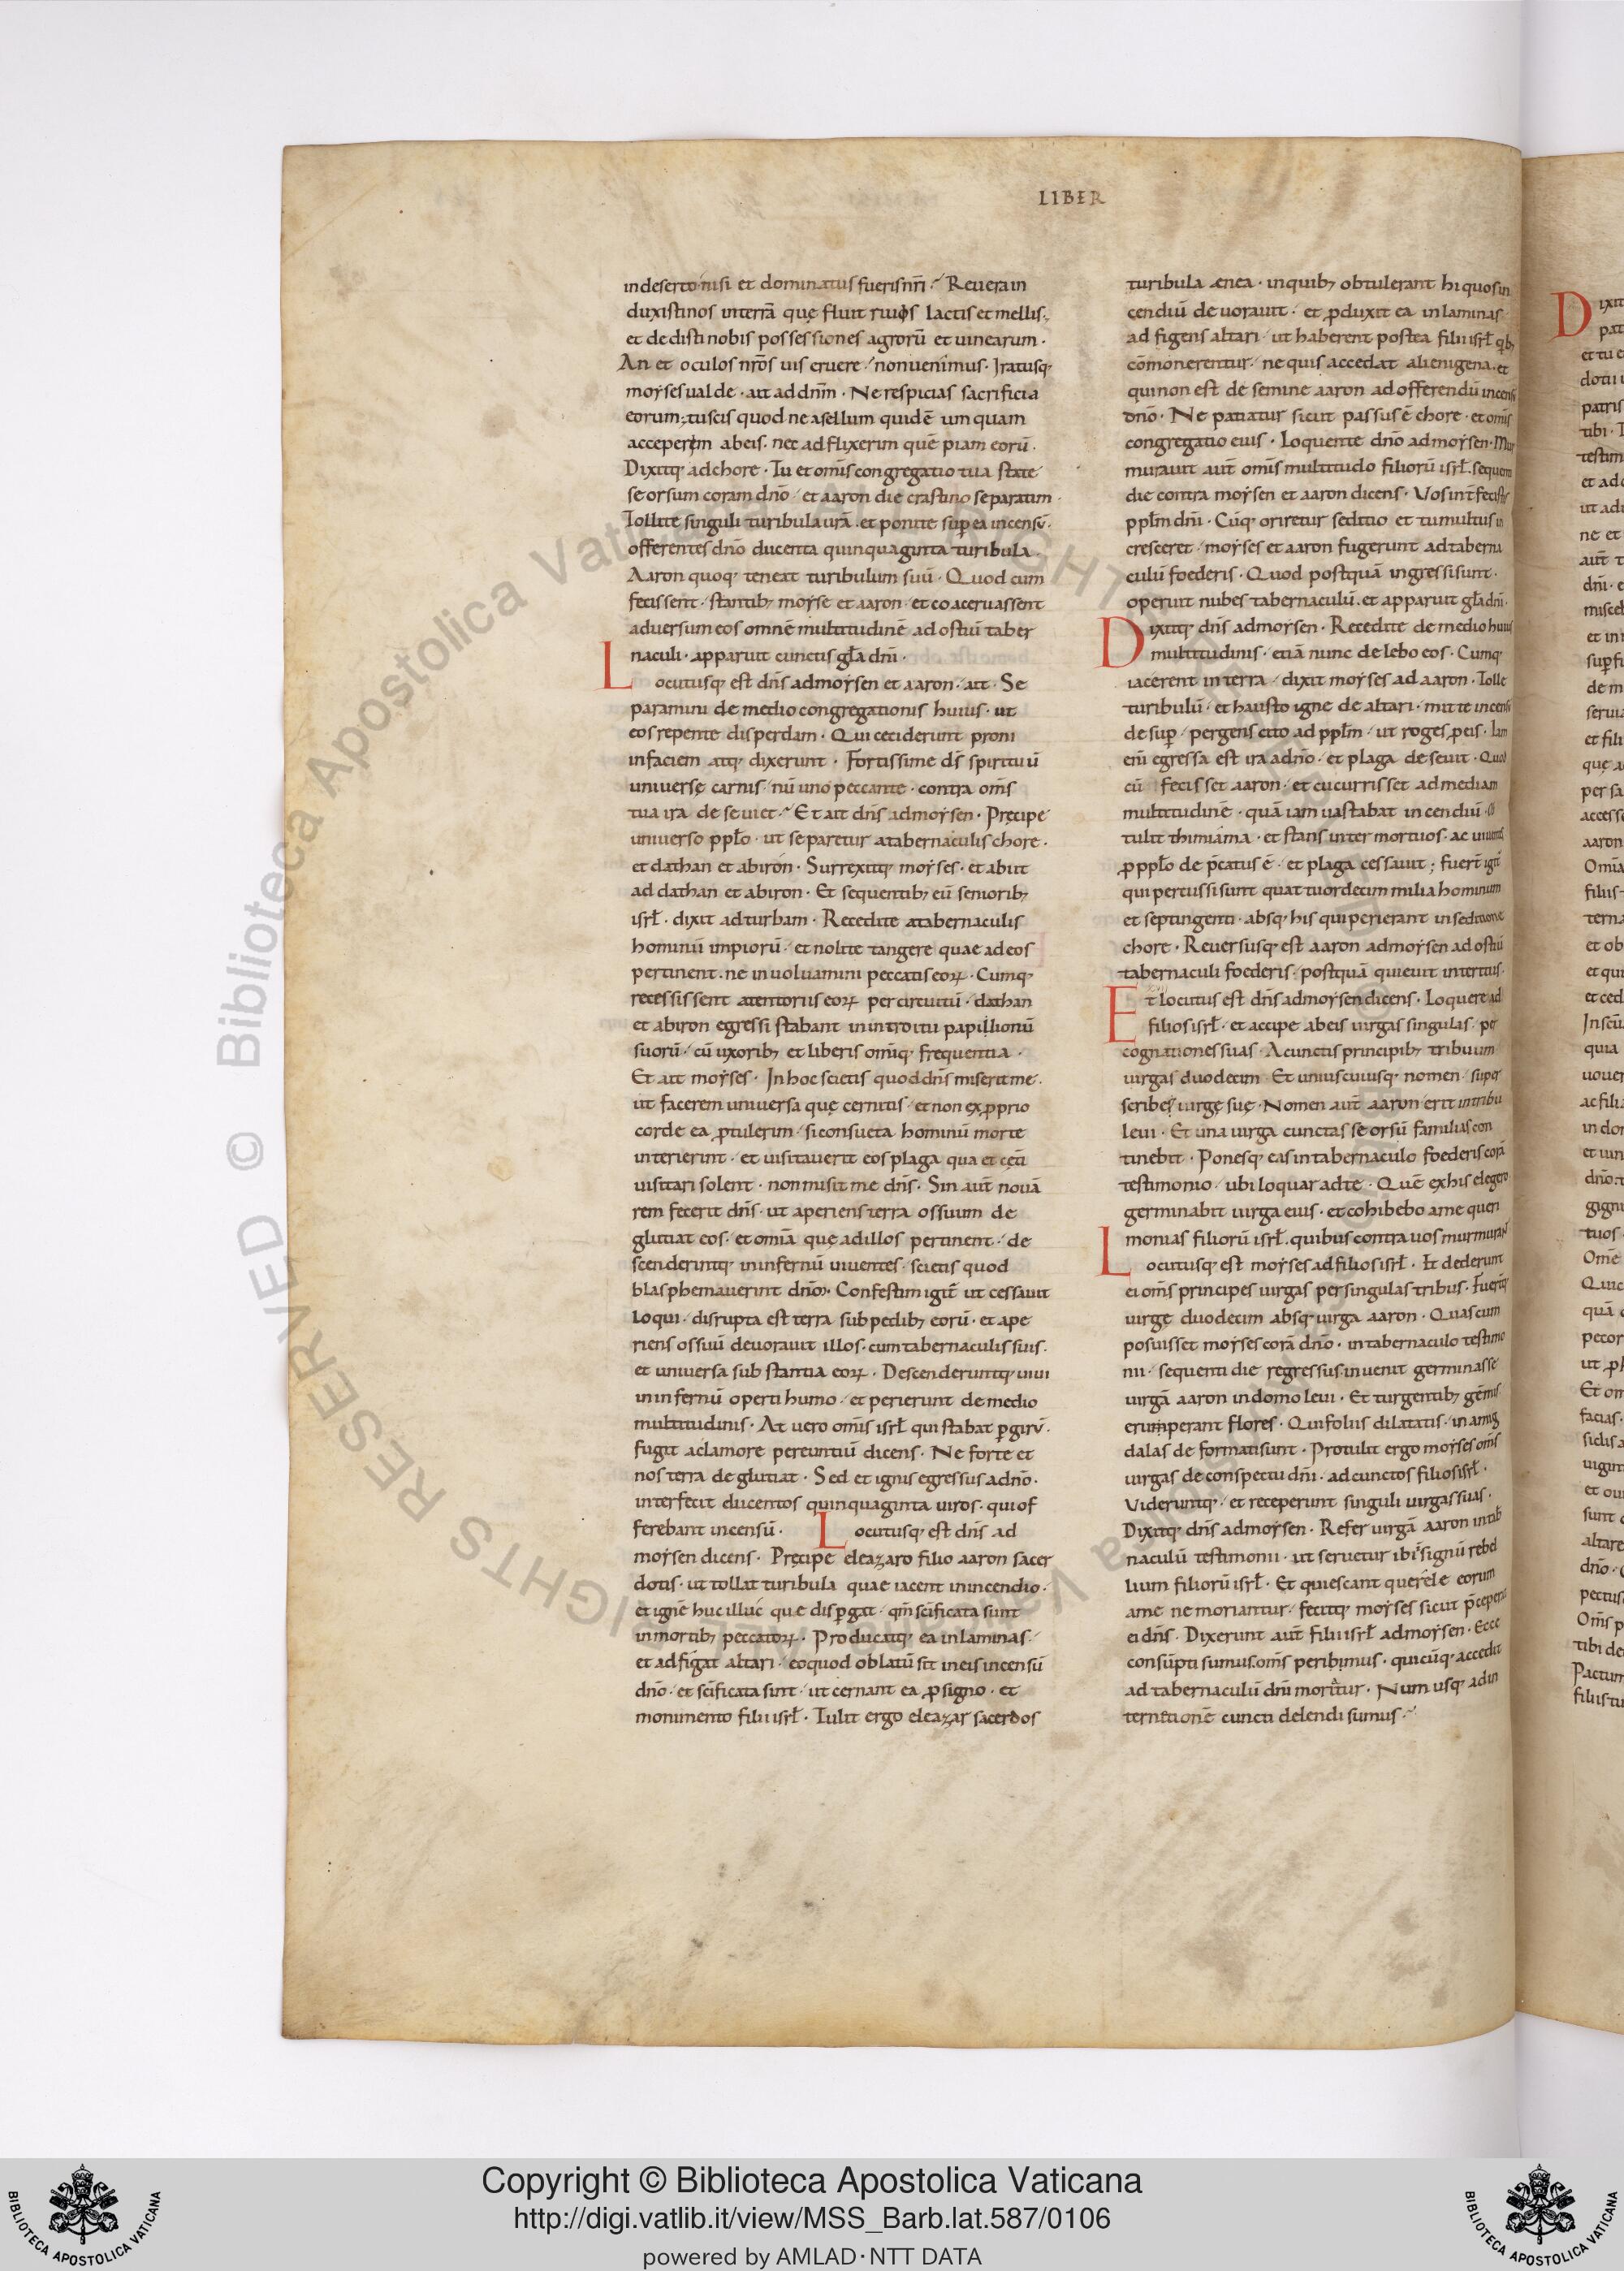 LIBER
in deserto nisi et dominatus fueris nr̄i · Reuera in
duxisti nos in terrā quę fluit riuis lactis et mellis ·
et dedisti nobis possessiones agrorū et uinearum ·
An et oculos nr̄os uis eruere · non uenimus · Iratusq;
moyses ualde · ait ad dn̄m · Ne respicias sacrificia
eorum · tu scis quod ne asellum quidē umquam
acceperim ab eis · nec adflixerim quēpiam eorū ·
Dixitq; ad chore · Tu et om̄is congregatio tua state
seorsum coram dn̄o · et aaron die crastino separatim ·
Tollite singuli turibula ur̄a · et ponite sup̄ ea incensū ·
offerentes dn̄o ducenta quinquaginta turibula ·
Aaron quoq; teneat turibulum suū · Quod cum
fecissent · stantib; moyse et aaron · et coaceruassent
aduersum eos omnē multitudinē ad ostiū taber
naculi · apparuit cunctis gl̄a dn̄i ·
Locutusq; est dn̄s ad moysen et aaron · ait · Se
paramini de medio congregationis huius · ut
eos repente disperdam · Qui ceciderunt proni
in faciem atq; dixerunt · Fortissime d̄s spirituū
uniuersę carnis · nū uno peccante · contra om̄s
tua ira deseuiet · Et ait dn̄s ad moysen · Pręcipe
uniuerso ppl̄o · ut separetur a tabernaculis chore ·
et dathan et abiron · Surrexitq; moyses · et abiit
ad dathan et abiron · Et sequentib; eū seniorib;
isrl̄ · dixit ad turbam · Recedite a tabernaculis
hominū impiorū · et nolite tangere quae ad eos
pertinent · ne inuoluamini peccatis eoꝝ · Cumq;
recessissent a tentoriis eoꝝ per circuitū · dathan
et abiron egressi stabant in introitu papillionū
suorū · cū uxorib; et liberis om̄iq; frequentia ·
Et ait moyses · In hoc scietis quod dn̄s miserit me ·
ut facerem uniuersa quę cernitis · et non ex ꝓprio
corde ea ꝓtulerim · si consueta hominū morte
interierint · et uisitauerit eos plaga qua et cęti
uisitari solent · non misit me dn̄s · Sin aut̄ nouā
rem fecerit dn̄s · ut aperiens terra os suum de
glutiat eos · et omīa quę ad illos pertinent · de
scenderintq; in infernū uiuentes · scietis quod
blasphemauerint dn̄om · Confestim igit̄ ut cessauit
loqui · disrupta est terra sub pedib; eorū · et ape
riens os suū deuorauit illos · cum tabernaculis suis ·
et uniuersa substantia eoꝝ · Descenderuntq; uiui
in infernū operti humo · et perierunt de medio
multitudinis · At uero om̄is isrl̄ qui stabat ꝑ girū ·
fugit a clamore pereuntiū dicens · Ne forte et
nos terra deglutiat · Sed et ignis egressus a dn̄o ·
interfecit ducentos quinquaginta uiros · qui of
ferebant incensū · Locutusq; est dn̄s ad
moysen dicens · Pręcipe eleazaro filio aaron sacer
dotis · ut tollat turibula quae iacent in incendio ·
et ignē huc illuc que disꝑgat · qm̄ scīficata sunt
in mortib; peccatoꝝ · Producatq; ea in laminas ·
et adfigat altari · eo quod oblatū sit in eis incensū
dn̄o · et scīficata sint · ut cernant ea ꝓ signo · et
monimento filii isrl̄ · Tulit ergo eleazar sacerdos
turibula ænea · in quib; obtulerant hi quos in
cendiū deuorauit · et ꝓduxit ea in laminas
adfigens altari · ut haberent postea filii isrl̄ qb;
cōmonerentur · ne quis accedat alienigena · et
qui non est de semine aaron ad offerendū incensū
dn̄o · Ne patiatur sicut passus ē chore · et om̄is
congregatio eius · Loquente dn̄o ad moysen · Mur
murauit aut̄ om̄is multitudo filiorū isrl̄ · sequenti
die contra moysen et aaron dicens · Vos int̄fecistis
ppl̄m dn̄i · Cūq; oriretur seditio et tumultus in
cresceret · moyses et aaron fugerunt ad taberna
culū foederis · Quod postquā ingressi sunt ·
operuit nubes tabernaculū · et apparuit gl̄a dn̄i ·
Dixitq; dn̄s ad moysen · Recedite de medio huius
multitudinis · etiā nunc delebo eos · Cumq;
iacerent in terra · dixit moyses ad aaron · Tolle
turibulū · et hausto igne de altari · mitte incensū
desup̄ · pergens cito ad ppl̄m · ut roges ꝓ eis · Iam
enī egressa est ira a dn̄o · et plaga deseuit · Quod
cū fecisset aaron · et cucurrisset ad mediam
multitudinē · quā iam uastabat incendiū · ob
tulit thimiama · et stans inter mortuos · ac uiuentes
ꝓ ppl̄o dep̄catus ē · et plaga cessauit ; fuert̄ igit̄
qui percussi sunt quattuordecim milia hominum
et septingenti · absq; his qui perierant in seditione
chore · Reuersusq; est aaron ad moysen ad ostiū
tabernaculi foederis · postquā quieuit interitus ·
Et locutus est dn̄s ad moysen dicens · Loquere ad
filios isrl̄ · et accipe ab eis uirgas singulas · per
cognationes suas · A cunctis principib; tribuum
uirgas duodecim · Et uniuscuiusq; nomen · super
scribes uirgę suę · Nomen aut̄ aaron erit in tribu
leui · Et una uirga cunctas seorsū familias con
tinebit · Ponesq; eas in tabernaculo foederis corā
testimonio · ubi loquar ad te · Quē ex his elegero
germinabit uirga eius · et cohibebo a me queri
monias filiorū isrl̄ · quibus contra uos murmurant
Locutusq; est moyses ad filios isrl̄ · Et dederunt
ei om̄s principes uirgas per singulas tribus · Fuerт̄q;
uirgę duodecim absq; uirga aaron · Quas cum
posuisset moyses corā dn̄o · in tabernaculo testimo
nii · sequenti die regressus · inuenit germinasse
uirgā aaron in domo leui · Et turgentib; gēmis
eruperant flores · Qui foliis dilatatis · in amig
dalas deformati sunt · Protulit ergo moyses om̄s
uirgas de conspectu dn̄i · ad cunctos filios isrl̄ ·
Videruntq; · et receperunt singuli uirgas suas ·
Dixitq; dn̄s ad moysen · Refer uirgā aaron in tab̄
naculū testimonii · ut seruetur ibi signū rebel
lium filiorū isrl̄ · Et quiescant querele eorum
a me ne moriantur · fecitq; moyses sicut p̄ceperat
ei dn̄s · Dixerunt aut̄ filii isrl̄ ad moysen · Ecce
consūpti sumus · om̄s peribimus · quicūq; accedit
ad tabernaculū dn̄i moritur · Num usq; ad in
ternetionē cuncti delendi sumus ·
Copyright © Biblioteca Apostolica Vaticana
http://digi.vatlib.it/view/MSS_Barb.lat.587/0106
powered by AMLAD·NTT DATA
BIBLIOTECA APOSTOLICA VATICANA
BIBLIOTECA APOSTOLICA VATICANA